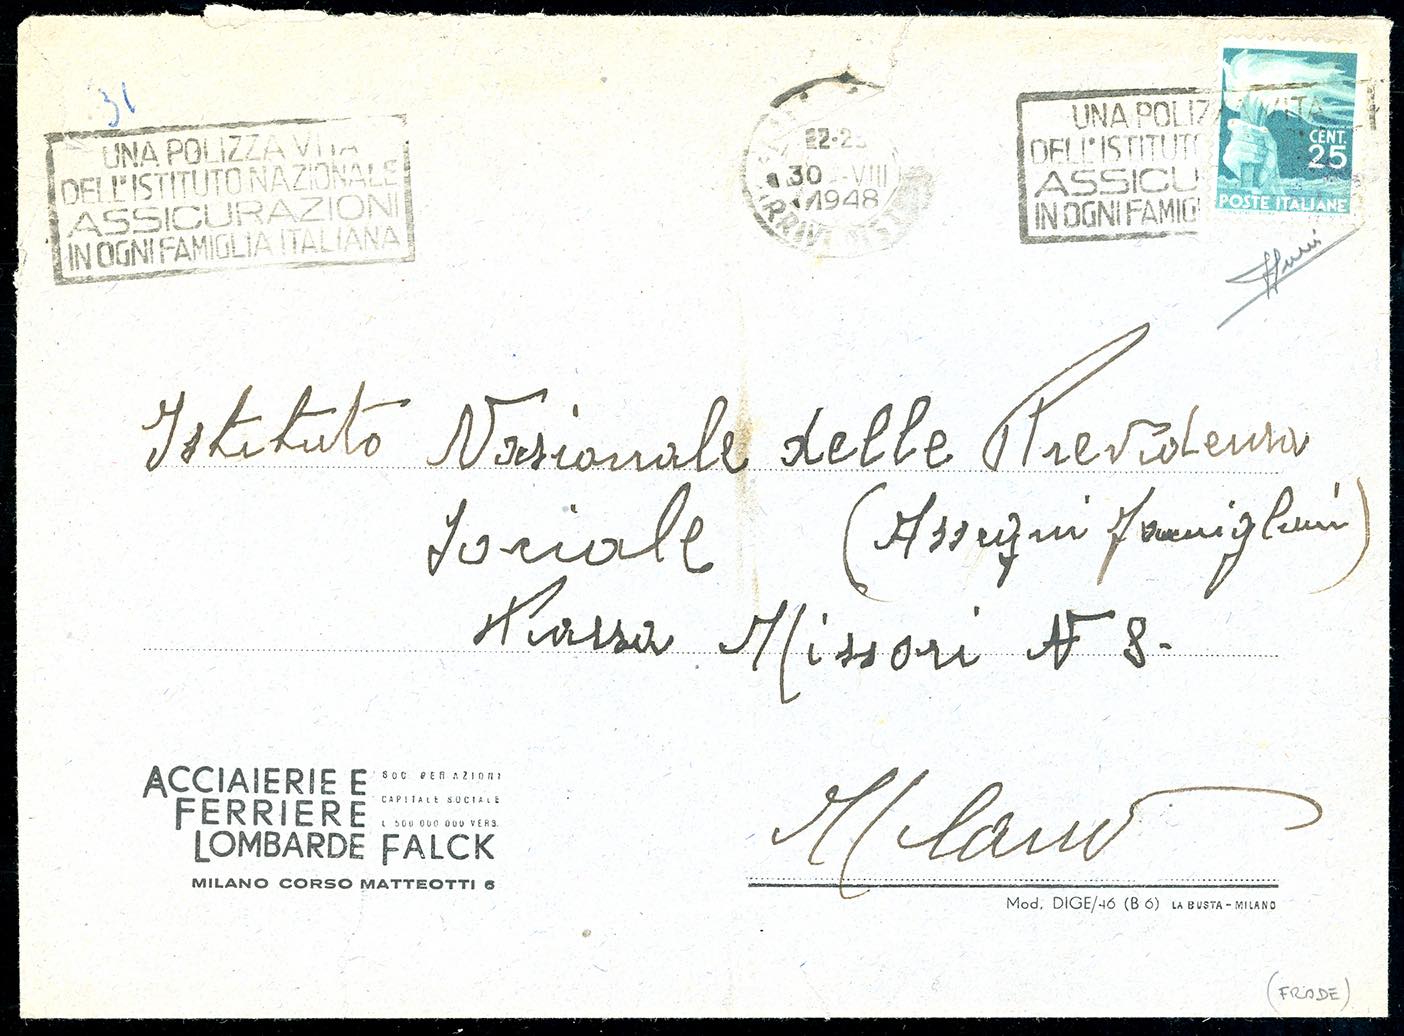 31
UNA POLIZZA VITA
DELL'ISTITUTO NAZIONALE
ASSICURAZIONI
IN OGNI FAMIGLIA ITALIANA
22-2
30 -VIII
1948
UNA POLIZZA VITA
DELL'ISTITUT
ASSICU
IN OGNI FAMIG
CENT.
25
POSTE ITALIANE
Istituto Nasionale delle Previdensa
Sociale (Assegni Famigliari)
Piassa Missori N 8.
Milano
ACCIAIERIE E
FERRIERE
LOMBARDE FALCK
SOC PER AZIONI
CAPITALE SOCIALE
L 500 000 000 VERS.
MILANO CORSO MATTEOTTI 6
Mod. DIGE/46 (B 6) LA BUSTA - MILANO
(FRODE)